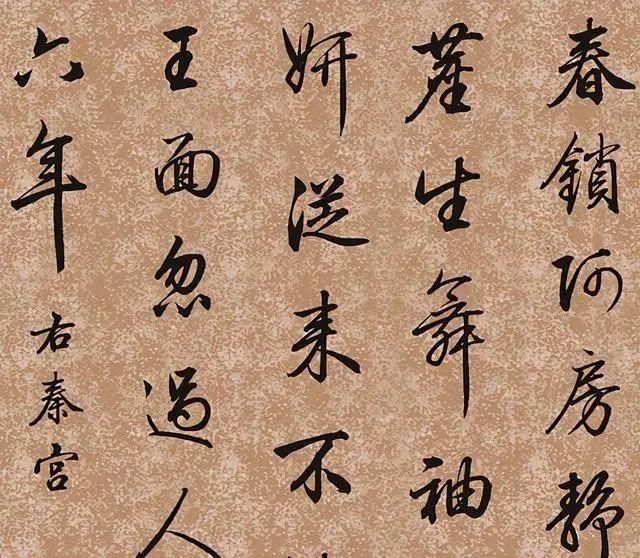 春鎖阿房靜
塵生舞袖
妍從來不
王面忽過人
六年
右秦宮